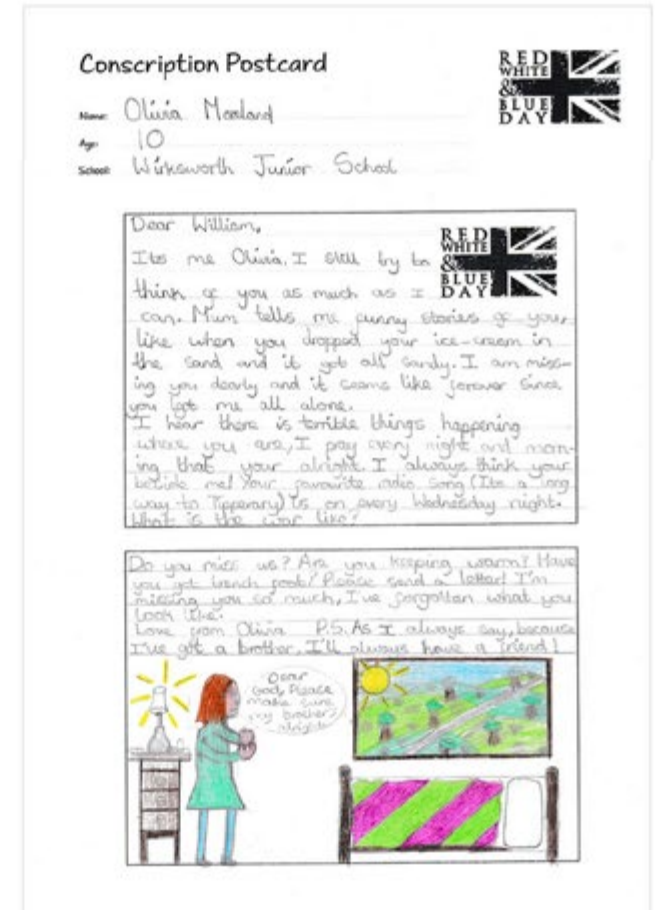 Conscription Postcard
RED
WHITE
&
BLUE
DAY
Name: Olivia
Age: 10
School: Wirksworth Junior School
Dear William,
Its me Olivia. I still try to
think of you as much as I
can. Mum tells me funny stories of you,
like when you dropped your ice-cream in
the sand and it got all sandy. I am miss-
ing you dearly and it seems like forever since
you left me all alone.
I hear there is terrible things happening
where you are, I pray every night and morn-
ing that your alright. I always think your
beside me! Your favourite radio song (Its a long
way to Tipperary) is on every Wednesday night.
What is the war like?
RED
WHITE
&
BLUE
DAY
Do you miss us? Are you keeping warm? Have
you got trench foot? Please send a letter! I'm
missing you so much, I've forgotten what you
look like.
Love from Olivia P.S. As I always say, because
I've got a brother, I'll always have a friend!
Dear
God, Please
make sure
my brothers
alright